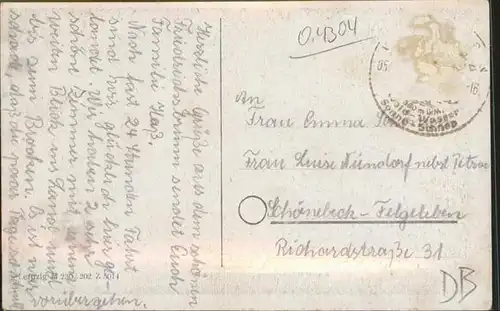 0.4304
Herzliche Grüße aus dem schönen
Friedrichsbrunn sendet Euch
Familie Haß.
Nach fast 24 Stunden Fahrt
sind wir glücklich hier ge-
landet. Wir haben 2 sehr
schöne Zimmer mit einem
weiten Blick ins Land und
bis zum Brocken. Es ist nur
schade, daß die paar Tage so schnell
vorübergehen.
An
Frau Emma
Frau Luise Nündorf nebst Petra
Schönebeck - Felgeleben
Richardstraße 31
Wasser
Schnee
DB
202 Z 5014